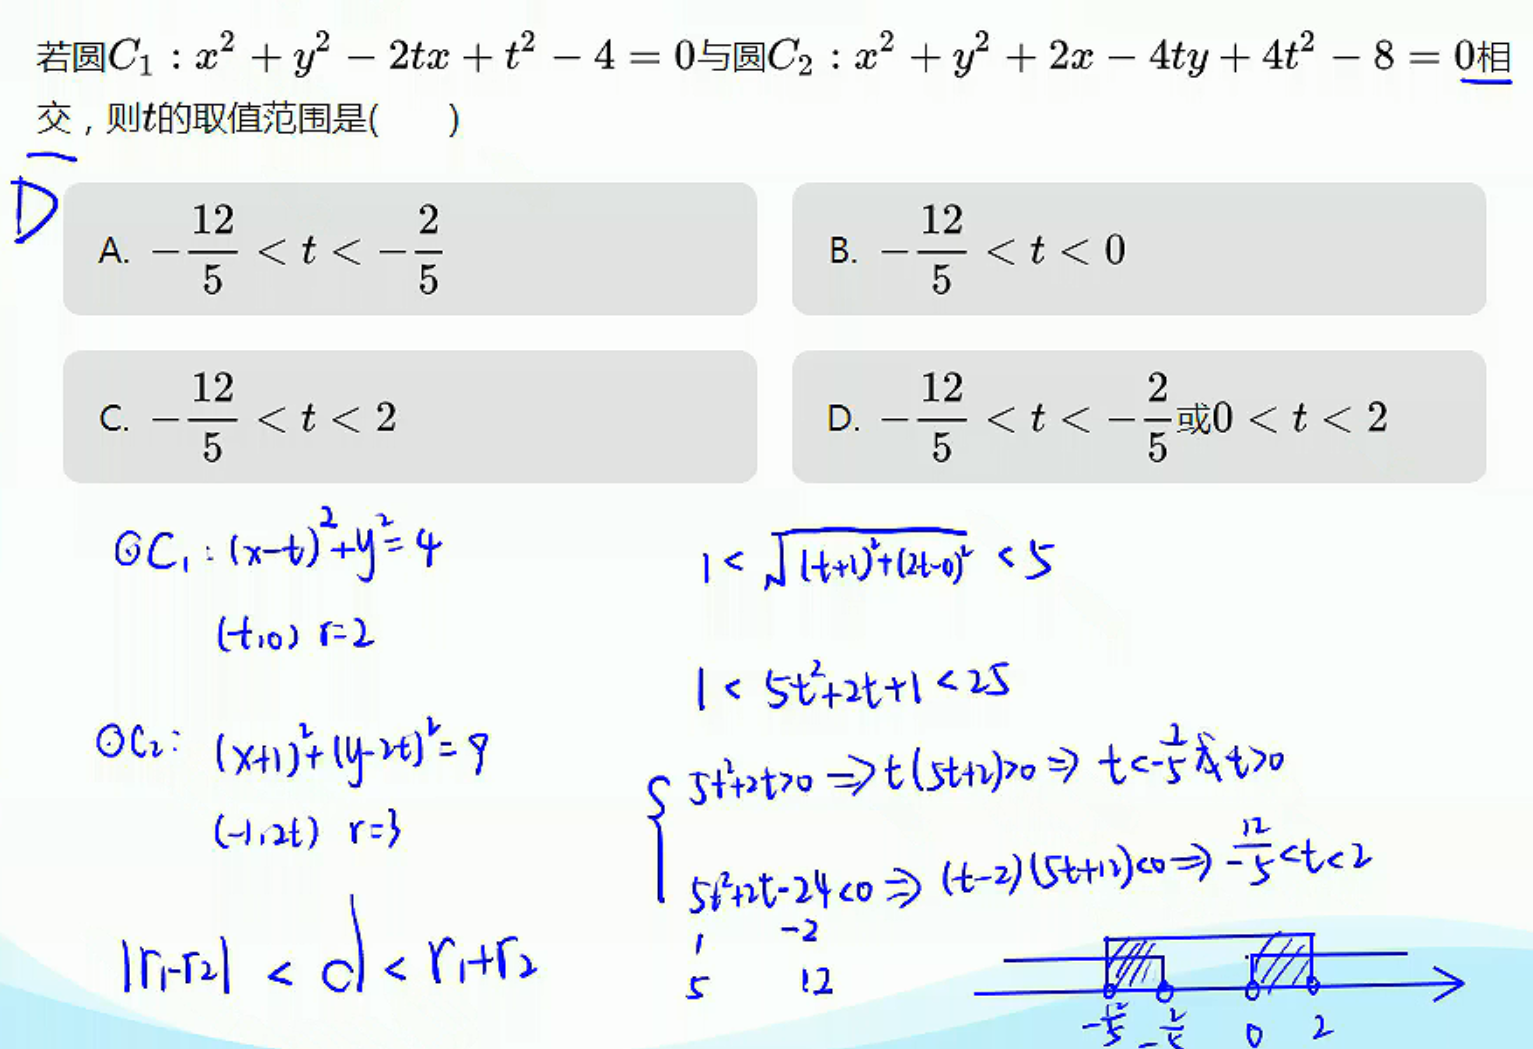 若圆C₁ : x² + y² − 2tx + t² − 4 = 0与圆C₂ : x² + y² + 2x − 4ty + 4t² − 8 = 0相
交，则t的取值范围是(　　)
D
A. −12/5 < t < −2/5
B. −12/5 < t < 0
C. −12/5 < t < 2
D. −12/5 < t < −2/5或0 < t < 2
⊙C₁: (x-t)²+y²=4
(t,0) r=2
⊙C₂: (x+1)²+(y-2t)²=9
(-1,2t) r=3
|r₁-r₂| < d < r₁+r₂
1 < √((t+1)²+(2t-0)²) < 5
1 < 5t²+2t+1 < 25
5t²+2t>0 ⇒ t(5t+2)>0 ⇒ t<-2/5 或 t>0
5t²+2t-24<0 ⇒ (t-2)(5t+12)<0 ⇒ -12/5<t<2
1 -2
5 12
-12/5 -2/5 0 2